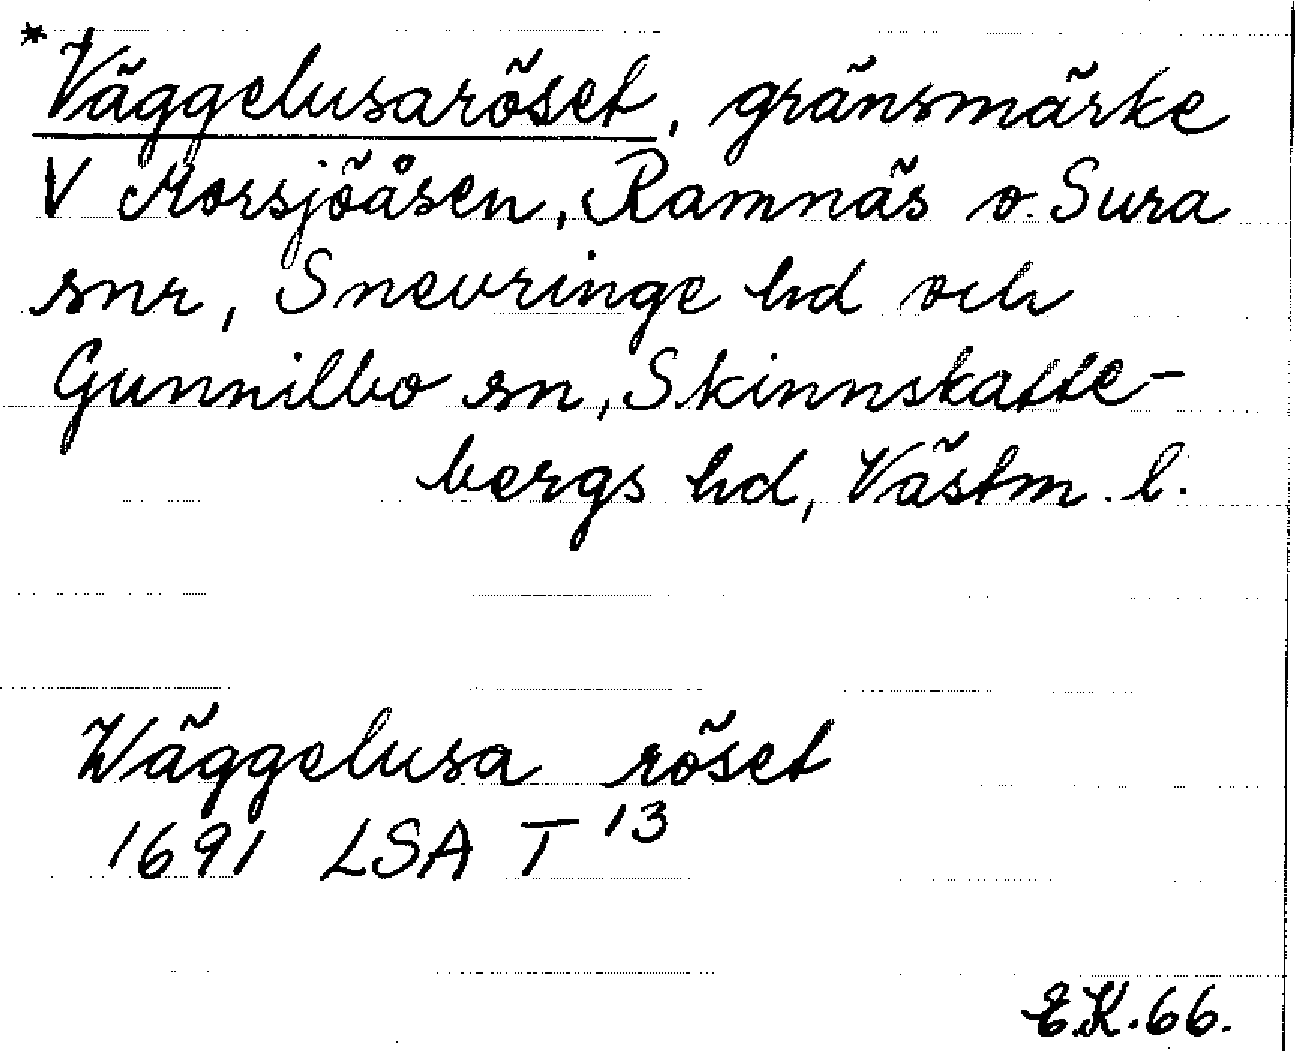 *Väggelusaröset, gränsmärke
V Morsjöåsen, Ramnäs o. Sura
snr, Snevringe hd och
Gunnilbo sn, Skinnskatte-
bergs hd, Västm. l.
Wäggelusa röset
1691 LSA T 13
E.K. 66.